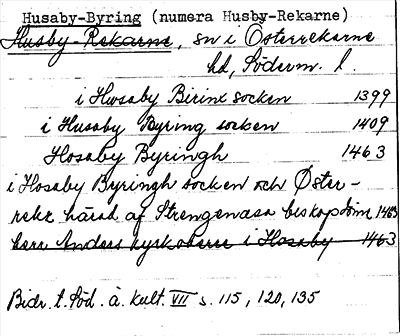 Husaby-Byring (numera Husby-Rekarne)
Husby-Rekarne, sn i Österrekarne
hd, Söderm. l.
i Hwsaby Birinx socken 1399
i Husaby Byring socken 1409
Hosaby Byringh 1463
i Hosaby Byringh socken och Öster-
rekr härad af Strengenæsa biskopsdöme 1463
herr Anders kyrkoherre i Hosaby 1463
Bidr. t. Söd. ä. kult. VII s. 115, 120, 135